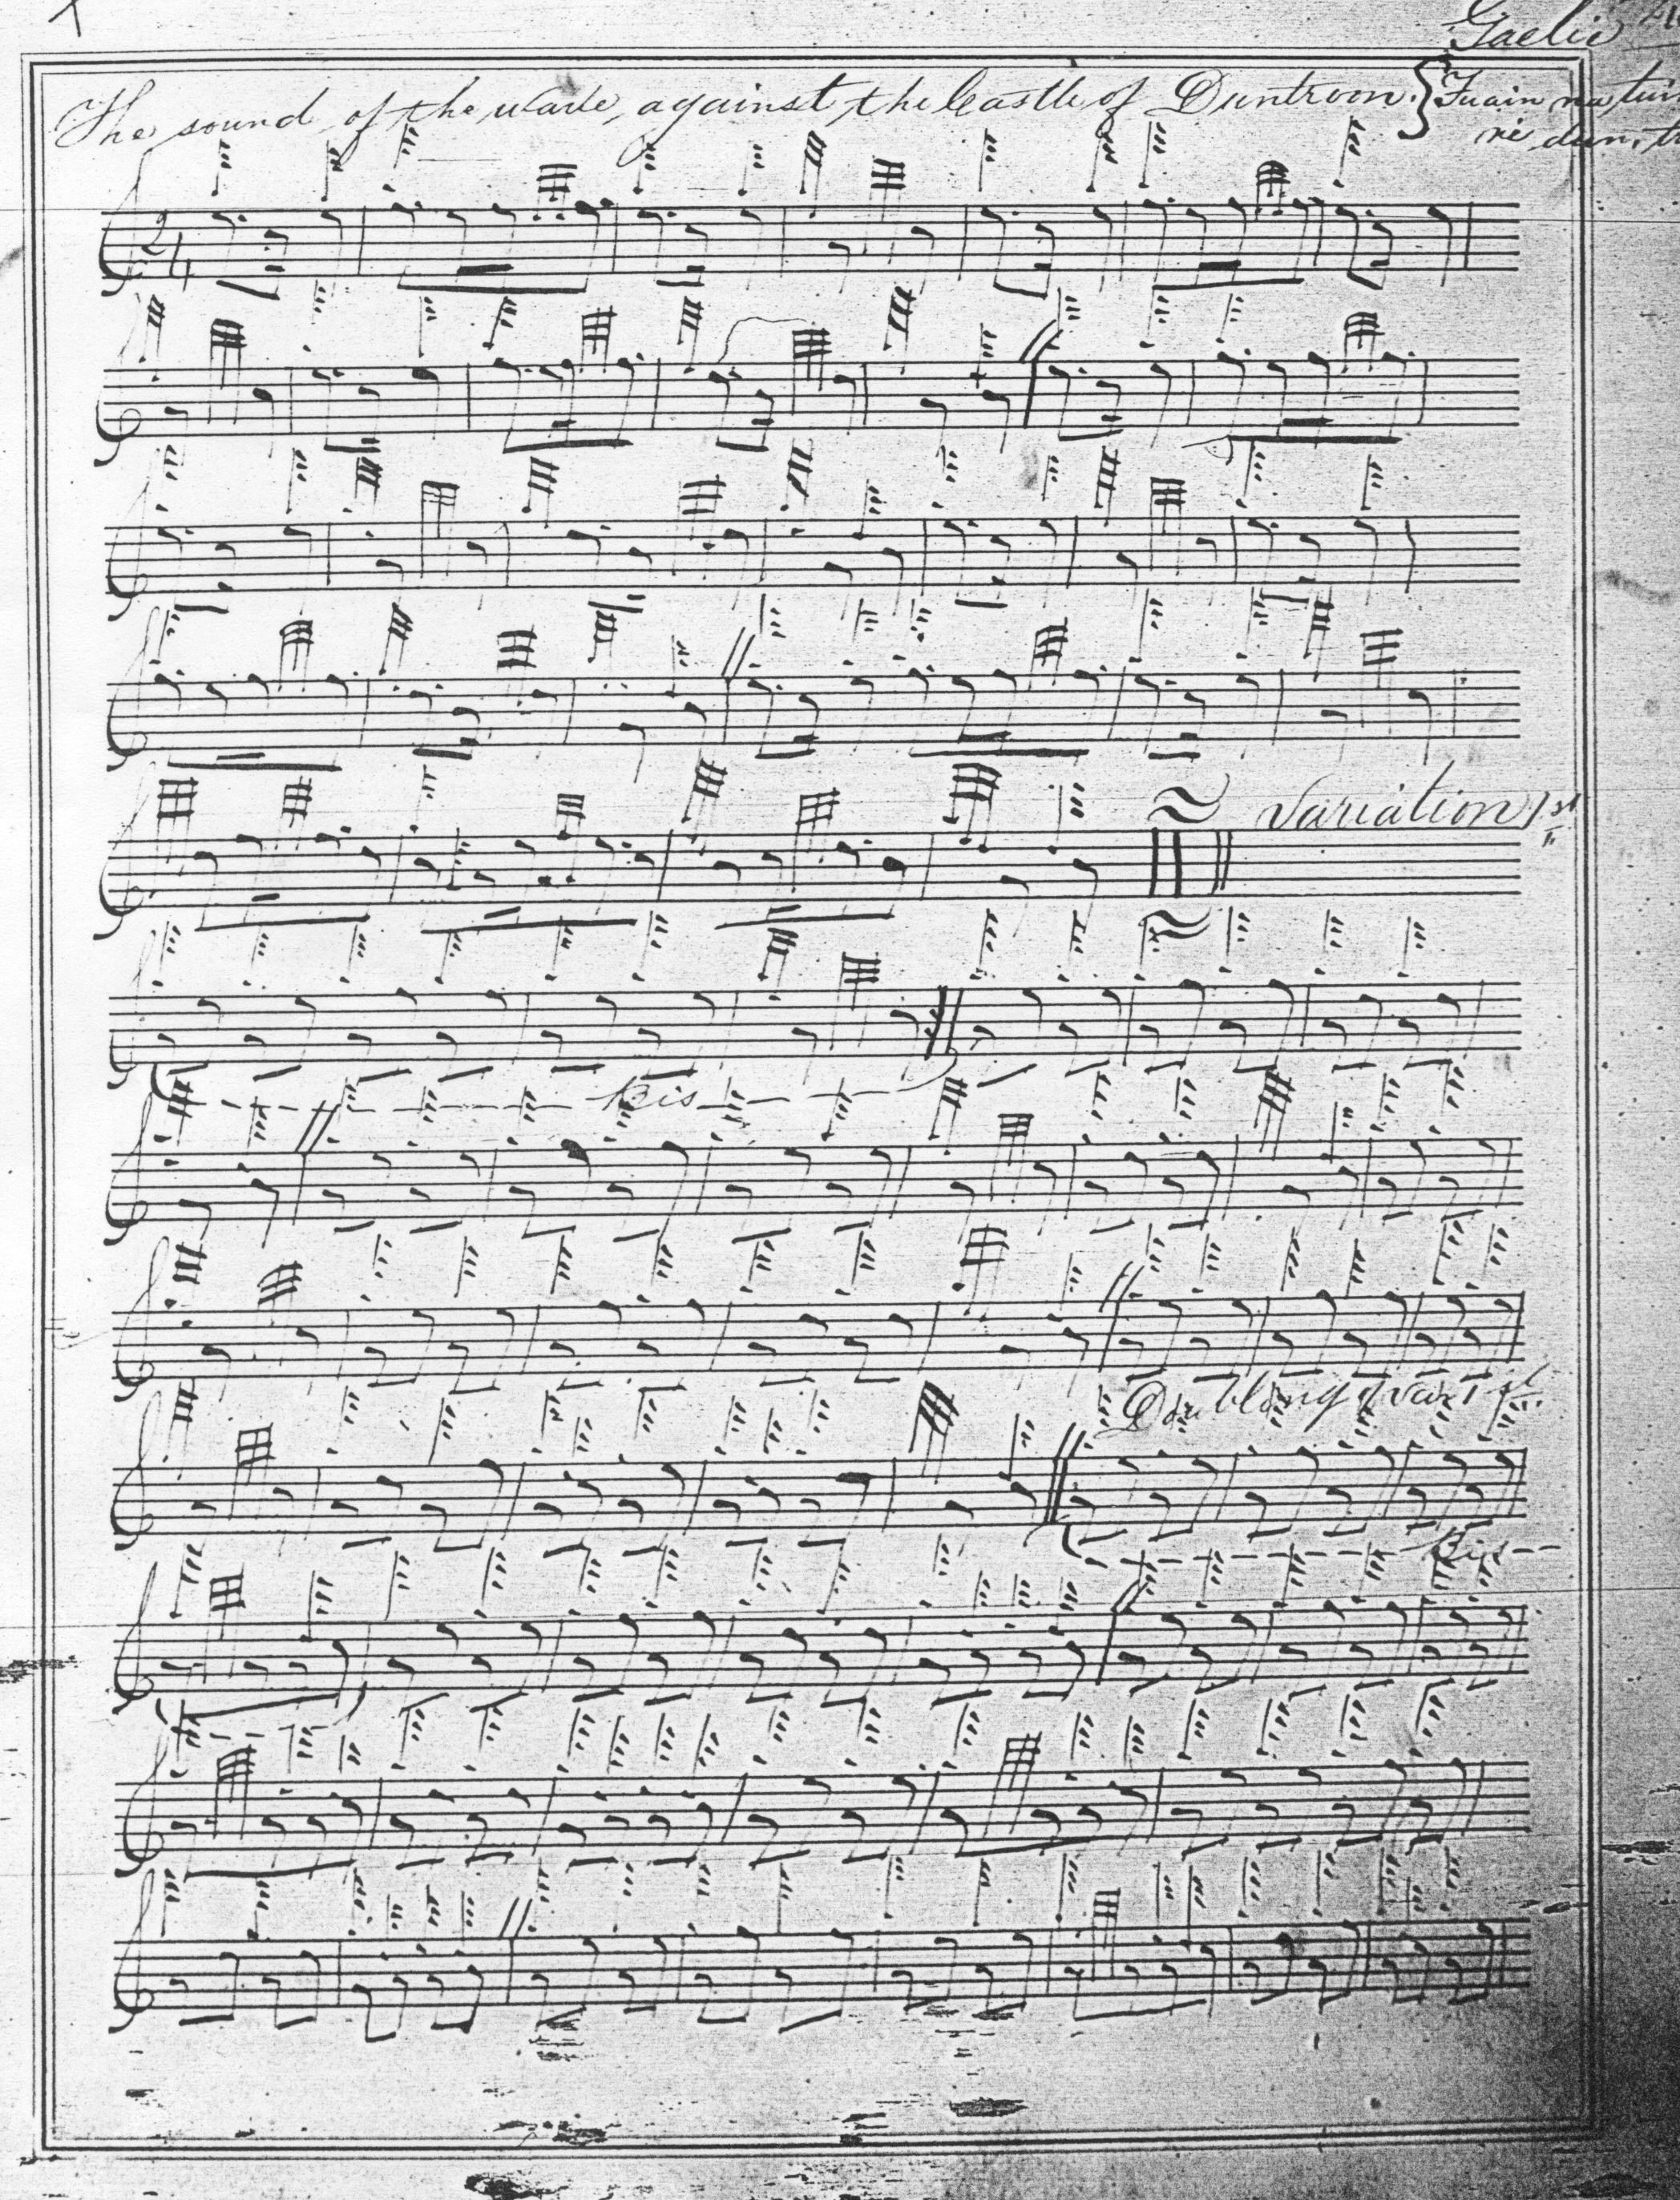 Gaelic
The sound of the wave against the Castle of Duntroon. { Fuain na
ri dun,
2/4
Variation 1st
Bis
Doubling of var 1st
Bis